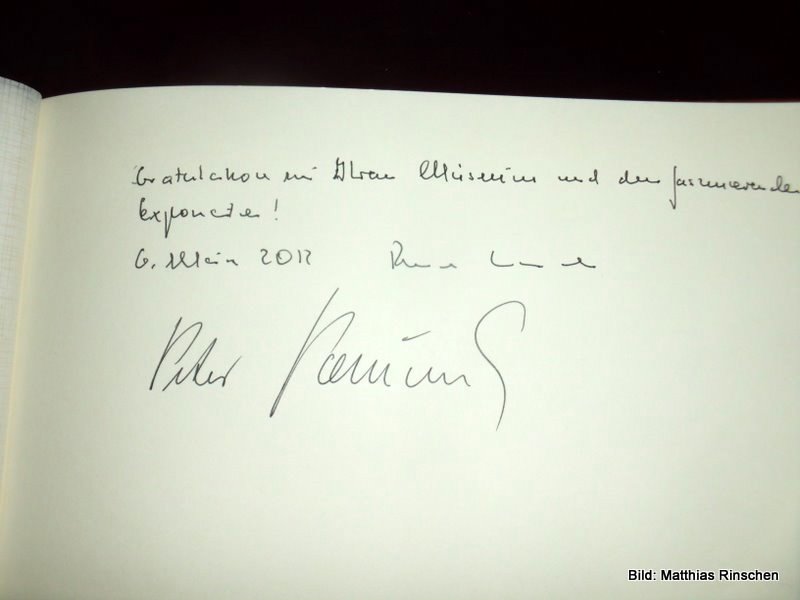 Gratulation mit Ihrem Museum und den faszinierenden
Exponaten!
6. März 2012
Peter
Bild: Matthias Rinschen